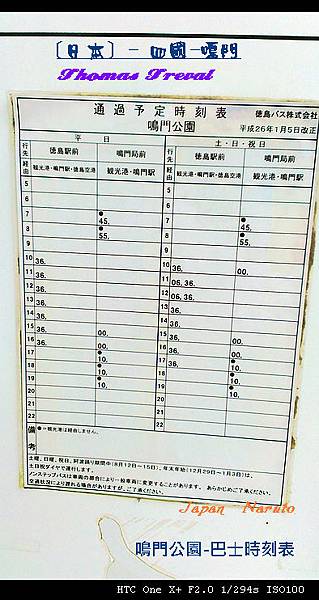 〔日本〕-四國-鳴門
Thomas Treval
通過予定時刻表
徳島バス株式会社
鳴門公園
平成26年1月5日改正
平日 土・日・祝日
行先 徳島駅前 鳴門局前 行先 徳島駅前 鳴門局前
経由 観光港・鳴門駅・徳島空港 観光港・鳴門駅 経由 観光港・鳴門駅・徳島空港 観光港・鳴門駅
5 5
6 6
7 ●45. 7 ●45.
8 ●55. 8 ●55.
9 9
10 36. 10 36. 00.
11 36. 11 06, 36.
12 36. 12 06, 36.
13 36. 13 36.
14 36. 14 36.
15 36. 00. 15 36.
16 36. 00. 16 36. 00.
17 ●10. 17 36. ●00.
18 ●10. 18 ●10.
19 ●10. 19 ●10.
20 20
21 21
22 22
備考
●=観光港は経由しません。
土曜、日曜、祝日、阿波踊り期間中(8月12日~15日)、年末年始(12月29日~1月3日)は、
土日祝ダイヤで運行します。
ノンステップバスは車両の都合により一般車両に変更することがあります。あらかじめご了承ください。
交通状況により遅れる場合がありますが、ご了承ください。
Japan Naruto
鳴門公園-巴士時刻表
HTC One X+ F2.0 1/294s ISO100